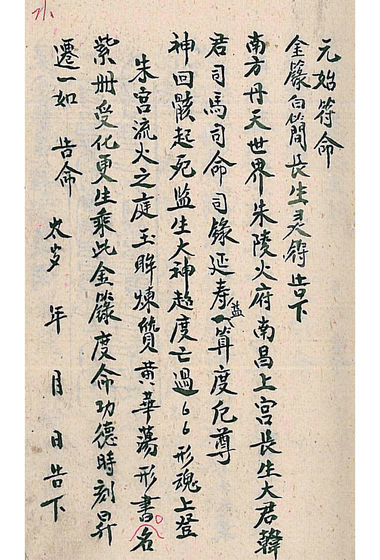 元始符命
金籙白簡長生灵符告下
南方丹天世界朱陵火府南昌上宮長生大君韓
君司馬司命司錄延寿益算度厄尊
神回骸起死監生大神超度亡過66形魂上登
朱宮流火之庭玉眸煉質黄華蕩形書名
紫册受化更生乘此金籙度命功德時刻昇
遷一如 告命 太岁 年 月 日告下